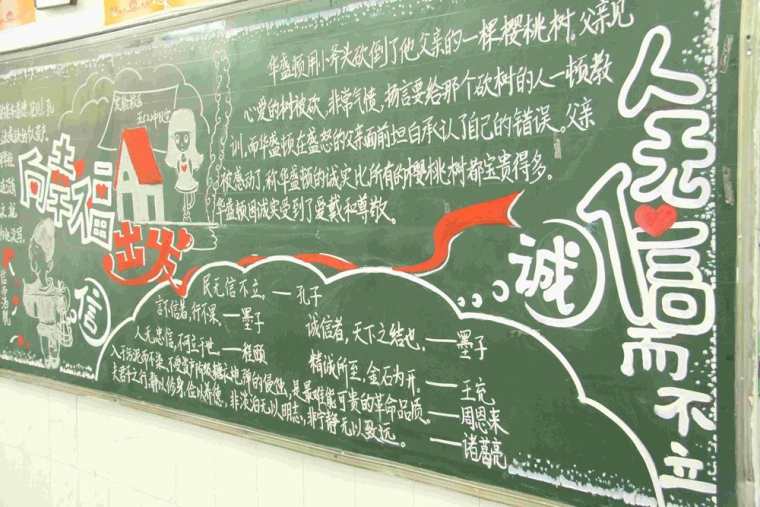 华盛顿用小斧头砍倒了他父亲的一棵樱桃树。父亲见
心爱的树被砍,非常气愤,扬言要给那个砍树的人一顿教
训。而华盛顿在盛怒的父亲面前坦白承认了自己的错误。父亲
被感动了,称华盛顿的诚实比所有的樱桃树都宝贵得多。
华盛顿因诚实受到了爱戴和尊敬。
向幸福
出发
信
诚
人无信
而不立
民无信不立。——孔子
言不信者,行不果。——墨子
诚信者,天下之结也。——墨子
人无忠信,不可立于世——程颐
精诚所至,金石为开。——王充
是最难能可贵的革命品质。——周恩来
夫君子之行,静以修身,俭以养德,非淡泊无以明志,非宁静无以致远。——诸葛亮